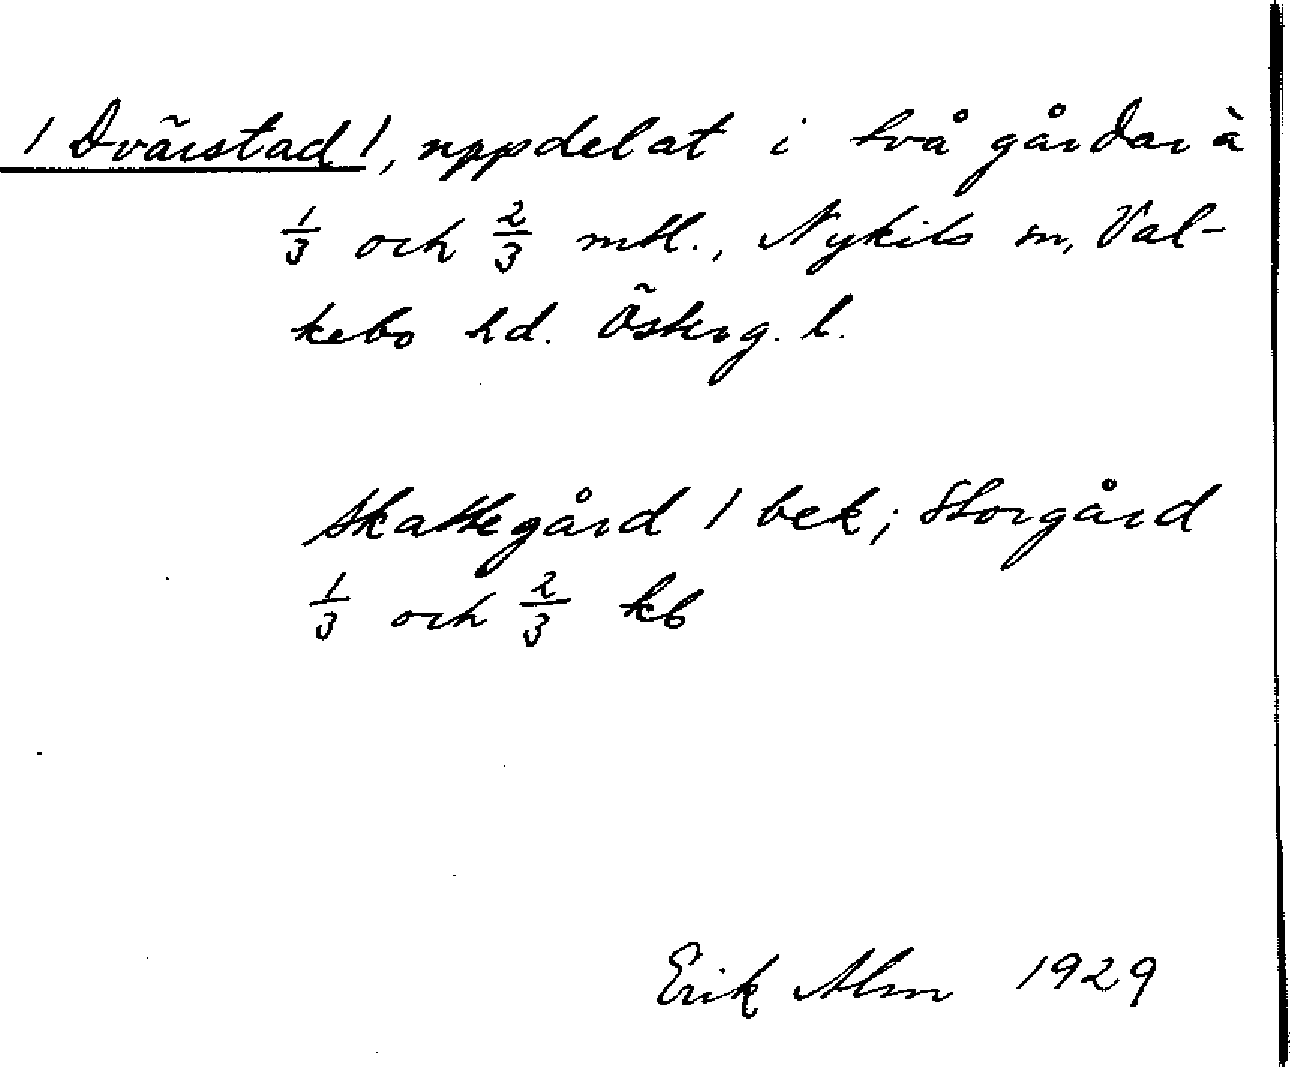 / Dvärstad /, uppdelat i två gårdar à
1/3 och 2/3 mtl., Nykils sn, Val-
kebo hd. Österg. l.
Skattegård / bek; Storgård
1/3 och 2/3 kb
Erik Alm 1929